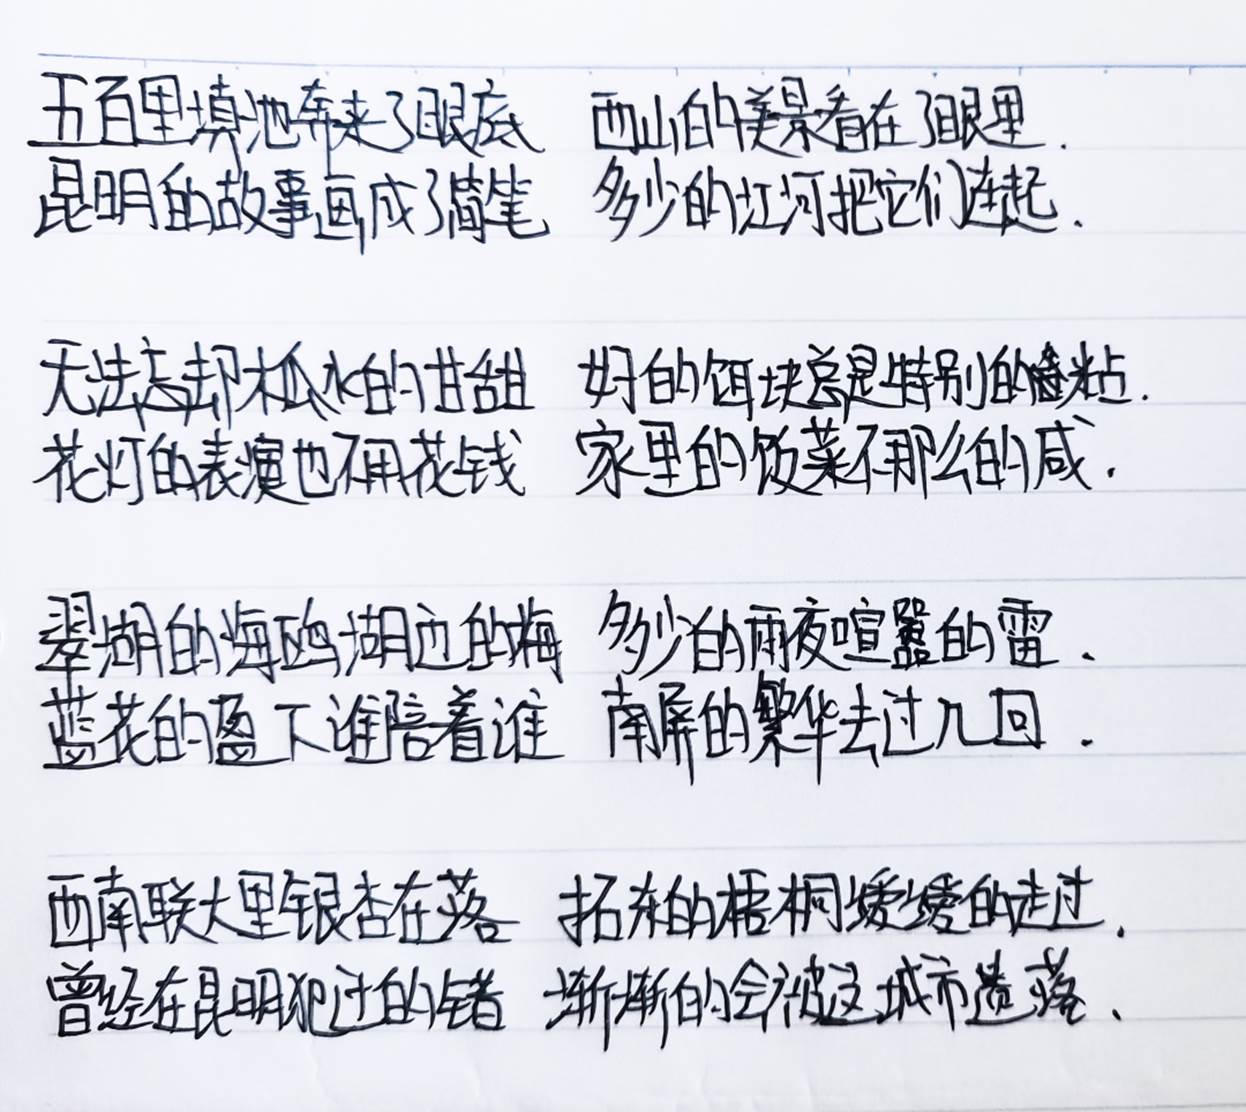 五百里填池奔来了眼底 西山的美景看在了眼里.
昆明的故事画成了简笔 多少的江河把它们连起.
无法忘却木瓜水的甘甜 好的饵块总是特别的粘.
花灯的表演也不用花钱 家里的饭菜不那么的咸.
翠湖的海鸥湖边的梅 多少的雨夜喧嚣的雷.
蓝花的盈下谁陪着谁 南屏的繁华去过几回.
西南联大里银杏在落 拓东的梧桐缓缓的走过.
曾经在昆明犯过的错 渐渐的会被这城市遗落.